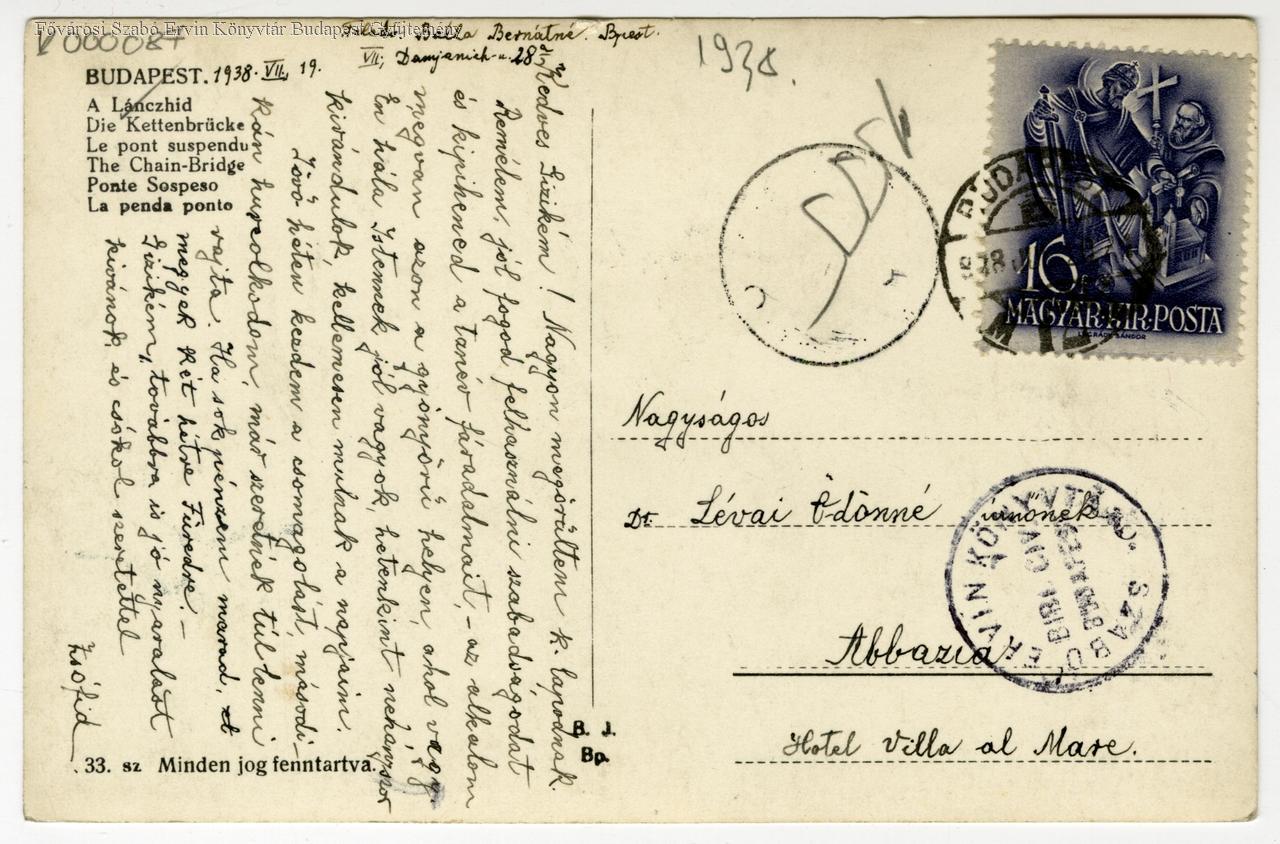 Fővárosi Szabó Ervin Könyvtár Budapest Gyűjtemény
V 000087
Bernátné. Bpest.
VII, Damjanich-u. 28
1938.
BUDAPEST. 1938. VII, 19.
A Lánczhid
Die Kettenbrücke
Le pont suspendu
The Chain-Bridge
Ponte Sospeso
La penda ponto
Kedves Gizikém! Nagyon megörültem k. lapodnak.
Remélem, jól fogod felhasználni szabadságodat
és kipihened a tanév fáradalmait, – az alkalom
megvan azon a gyönyörű helyen, ahol vagy.
Én hála Istennek jól vagyok, hetenkint néhányszor
kirándulok, kellemesen mulnak a napjaim.
Jövő héten kezdem a csomagolást, másodi-
kán hurcolkodom, már szeretnék túl lenni
rajta. Ha sok pénzem marad,
megyek két hétre Füredre. –
Gizikém, továbbra is jó nyaralást
kivánok és csókol szeretettel
Zsófid
33. sz Minden jog fenntartva.
B. J.
Bp.
16
MAGYAR·KIR·POSTA
BUDAPEST
Nagyságos
Dr. Lévai Ödönné urnőnek
Abbazia
Hotel Villa al Mare.
SZABÓ ERVIN KÖNYVTÁR
BUDAPEST